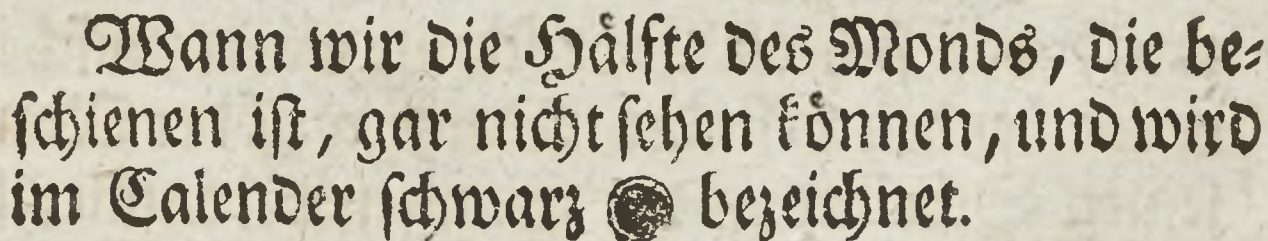 Wann wir die Hålfte des Monds, die be⸗
ſchienen iſt, gar nicht ſehen kõnnen, und wird
im Calender ſchwarz 🌑 bezeichnet.